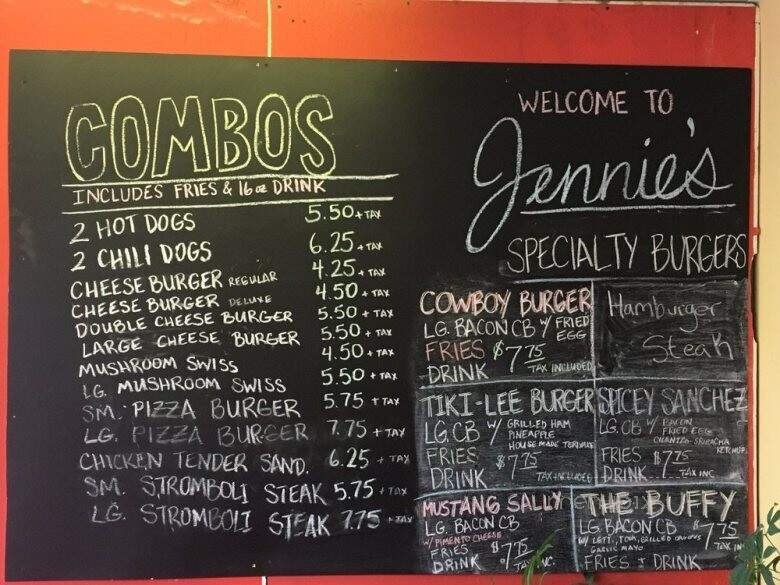 COMBOS
INCLUDES FRIES & 16 oz DRINK
2 HOT DOGS 5.50 + TAX
2 CHILI DOGS 6.25 + TAX
CHEESE BURGER REGULAR 4.25 + TAX
CHEESE BURGER DELUXE 4.50 + TAX
DOUBLE CHEESE BURGER 5.50 + TAX
LARGE CHEESE BURGER 5.50 + TAX
MUSHROOM SWISS 4.50 + TAX
LG. MUSHROOM SWISS 5.50 + TAX
SM. PIZZA BURGER 5.75 + TAX
LG. PIZZA BURGER 7.75 + TAX
CHICKEN TENDER SAND. 6.25 + TAX
SM. STROMBOLI STEAK 5.75 + TAX
LG. STROMBOLI STEAK 7.75 + TAX
WELCOME TO
Jennie's
SPECIALTY BURGERS
COWBOY BURGER
LG. BACON CB W/ FRIED EGG
FRIES $7.75
DRINK TAX INCLUDED
Hamburger
Steak
TIKI-LEE BURGER
LG CB W/ GRILLED HAM
PINEAPPLE
HOUSE MADE
FRIES $7.75
DRINK TAX INCLUDED
SPICEY SANCHEZ
LG. CB W/ BACON
FRIED EGG
CILANTRO-SRIRACHA
KETCHUP
FRIES $7.75
DRINK TAX INC.
MUSTANG SALLY
LG. BACON CB
W/ PIMENTO CHEESE
FRIES $7.75
DRINK TAX INC.
THE BUFFY
LG. BACON CB $7.75
W/ LETT., TOM, GRILLED ONIONS
GARLIC MAYO TAX IN
FRIES + DRINK